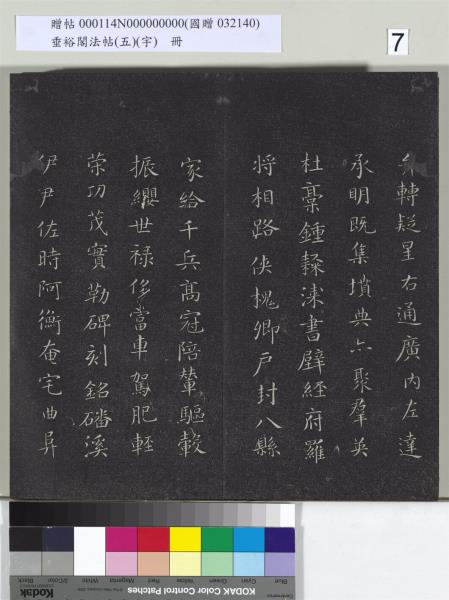 贈帖 000114N000000000(國贈 032140)
垂裕閣法帖(五)(宇) 冊
7
弁轉疑星右通廣內左達
承明既集墳典亦聚群英
杜稾鍾隸漆書壁經府羅
將相路俠槐卿戶封八縣
家給千兵高冠陪輦驅轂
振纓世祿侈富車駕肥輕
策功茂實勒碑刻銘磻溪
伊尹佐時阿衡奄宅曲阜
Kodak
KODAK Color Control Patches
Blue Cyan Green Yellow Red Magenta White 3/Color Black